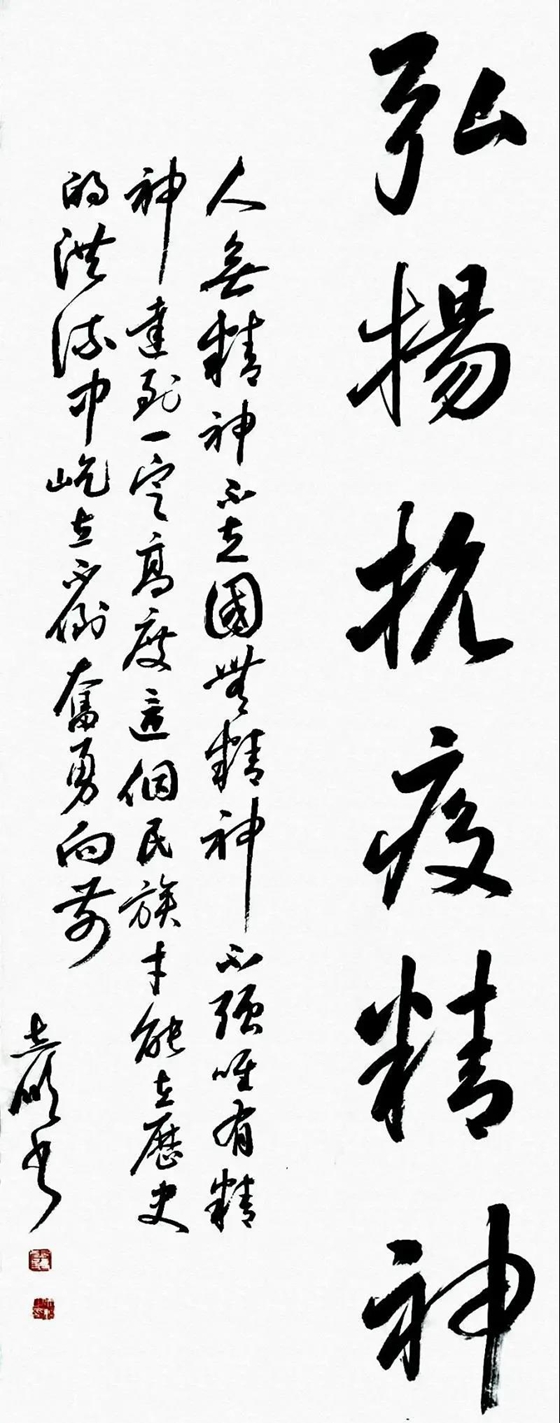 弘揚抗疫精神
人無精神不立國無精神不强唯有精
神達到一定高度這個民族才能在歷史
的洪流中屹立不倒奮勇向前
书